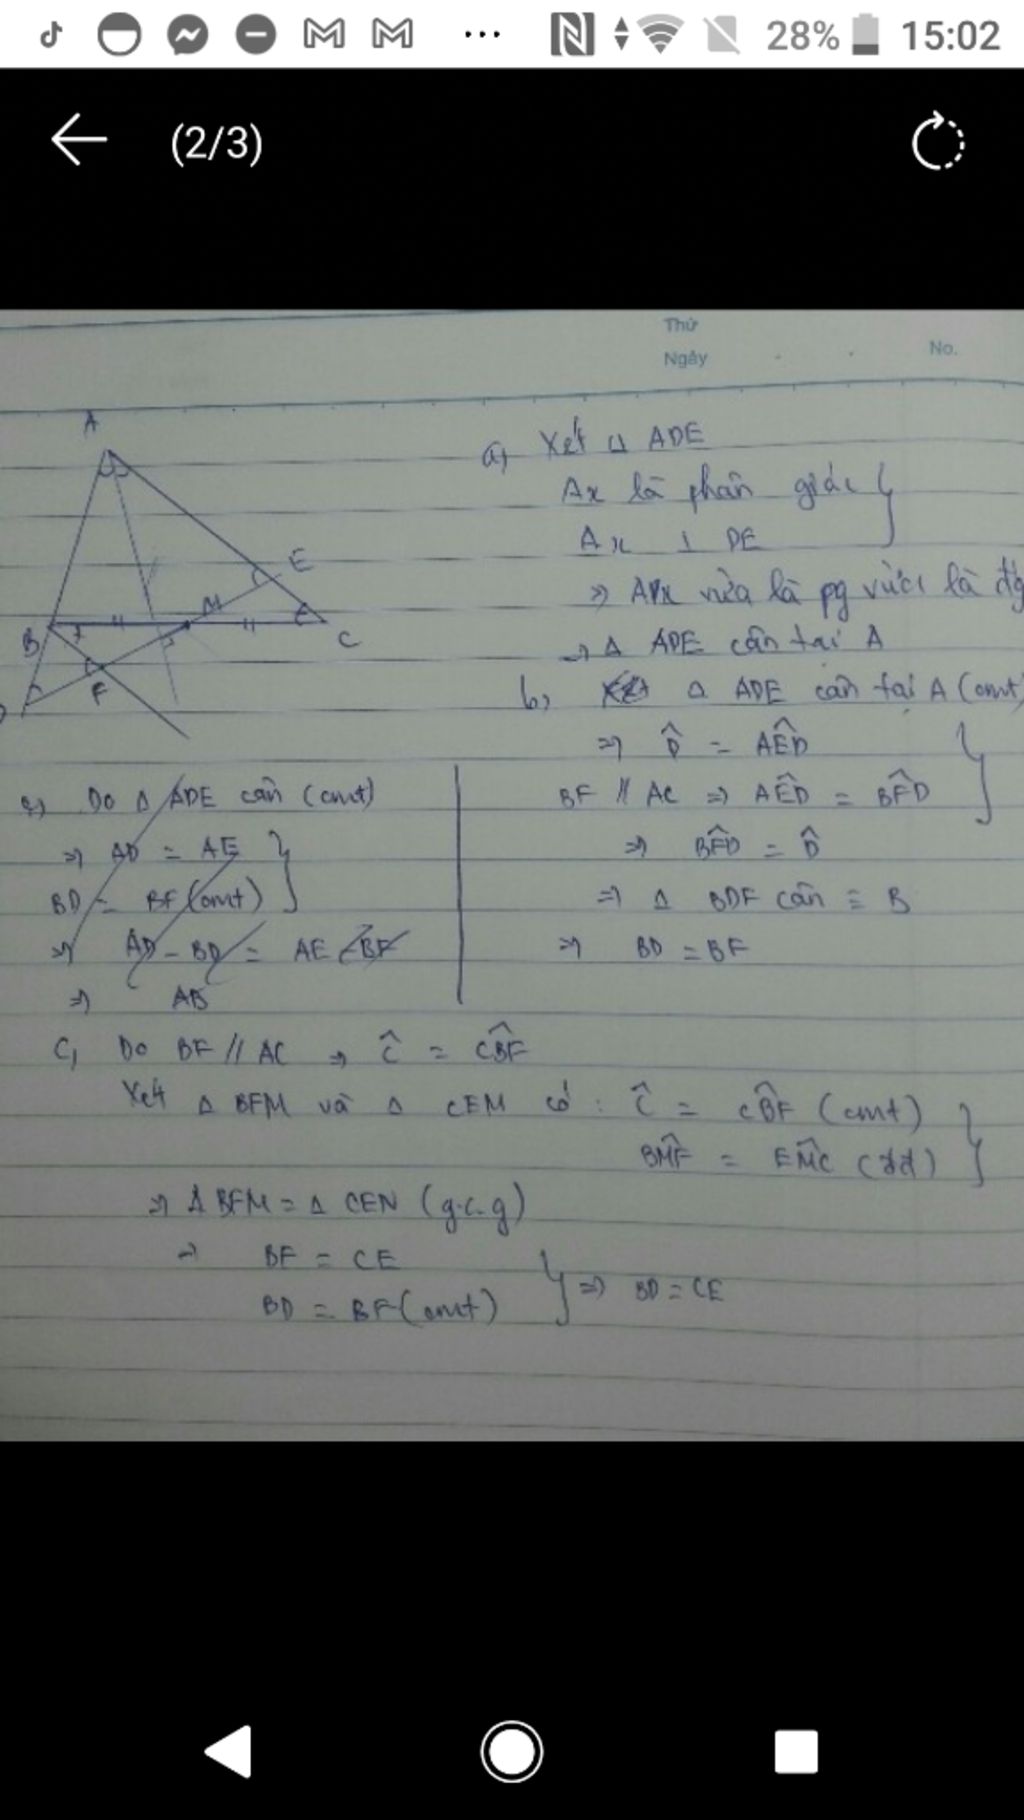 28% 15:02
(2/3)
Thứ
Ngày
No.
A
E
M
B
C
F
a) Xét △ ADE
Ax là phân giác }
Ax ⊥ DE
=> Ax vừa là pg vừa là
=> △ ADE cân tại A
b) △ ADE cân tại A (cmt)
=> D̂ = AÊD
BF // AC => AÊD = BF̂D }
=> BF̂D = D̂
=> △ BDF cân ≡ B
=> BD = BF
c) Do △ ADE cân (cmt)
=> AD = AE }
BD = BF (cmt)
=> AD - BD = AE - BF
=> AB
C, Do BF // AC => Ĉ = CB̂F
Xét △ BFM và △ CEM có : Ĉ = CB̂F (cmt) }
BM̂F = EM̂C (đđ)
=> △ BFM = △ CEN (g.c.g)
=> BF = CE
BD = BF (cmt) } => BD = CE